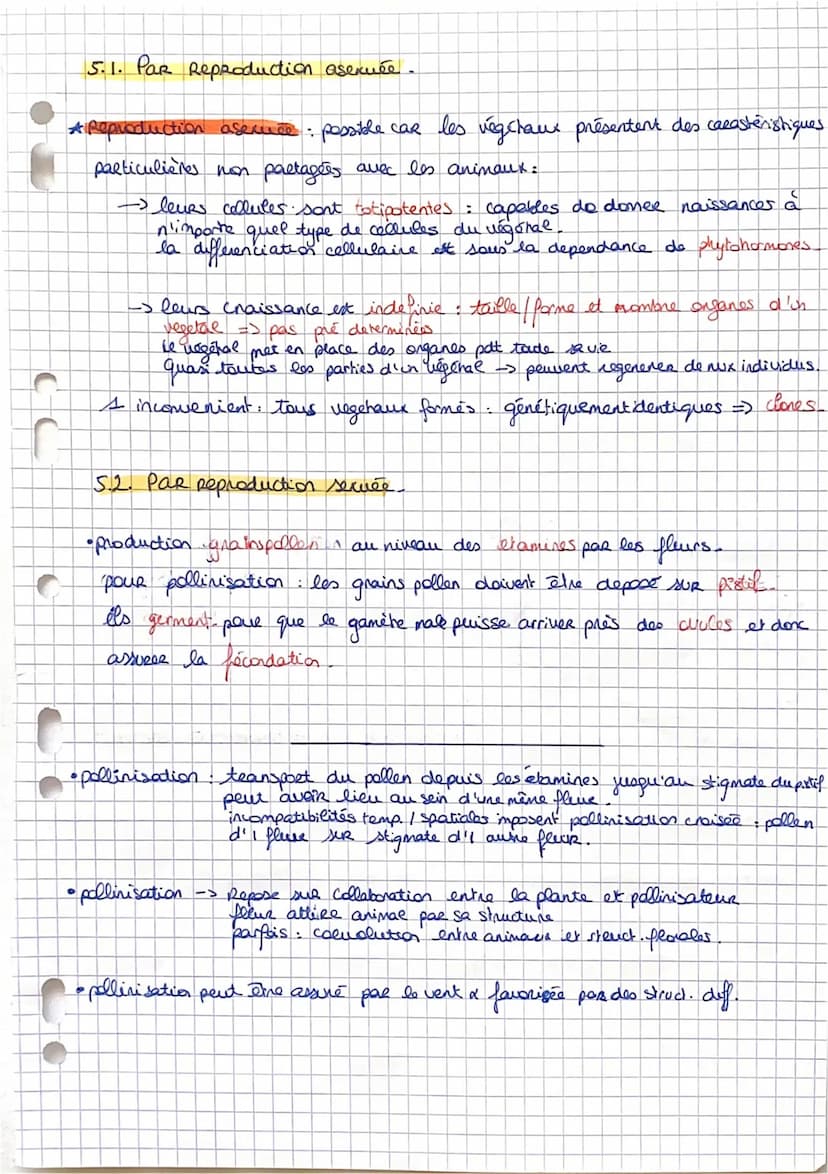 5.1. Par Reproduction asexuée.
* Reproduction asexuée : possible car les végétaux présentent des caractéristiques
particulières non partagées avec les animaux :
→ leurs cellules sont totipotentes : capables de donner naissances à
n'importe quel type de cellules du végétal.
la différenciation cellulaire est sous la dependance de phytohormones.
→ leurs croissance est indéfinie : taille / forme et nombre organes d'un
vegetal => pas pré determinées
le végétal met en place des organes pdt toute sa vie
Quasi toutes les parties d'un végétal → peuvent regenerer de nvx individus.
1 inconvenient : tous vegetaux formés : génétiquement identiques => clones.
5.2. Par reproduction sexuée.
• production grains pollen au niveau des étamines par les fleurs.
pour pollinisation : les grains pollen doivent être deposé sur pistil.
ils germent pour que le gamète male puisse arriver près des ovules et donc
assurer la fécondation.
• pollinisation : transport du pollen depuis les étamines jusqu'au stigmate du pistil
peut avoir lieu au sein d'une même fleur.
incompatibilités temp. / spatiales imposent pollinisation croisée : pollen
d'1 fleur sur stigmate d'1 autre fleur.
• pollinisation → Repose sur collaboration entre la plante et pollinisateur
fleur attire animal par sa structure
parfois : coevolution entre animaux et struct. florales.
• pollinisation peut être assuré par le vent & favorisée par des struct. diff.